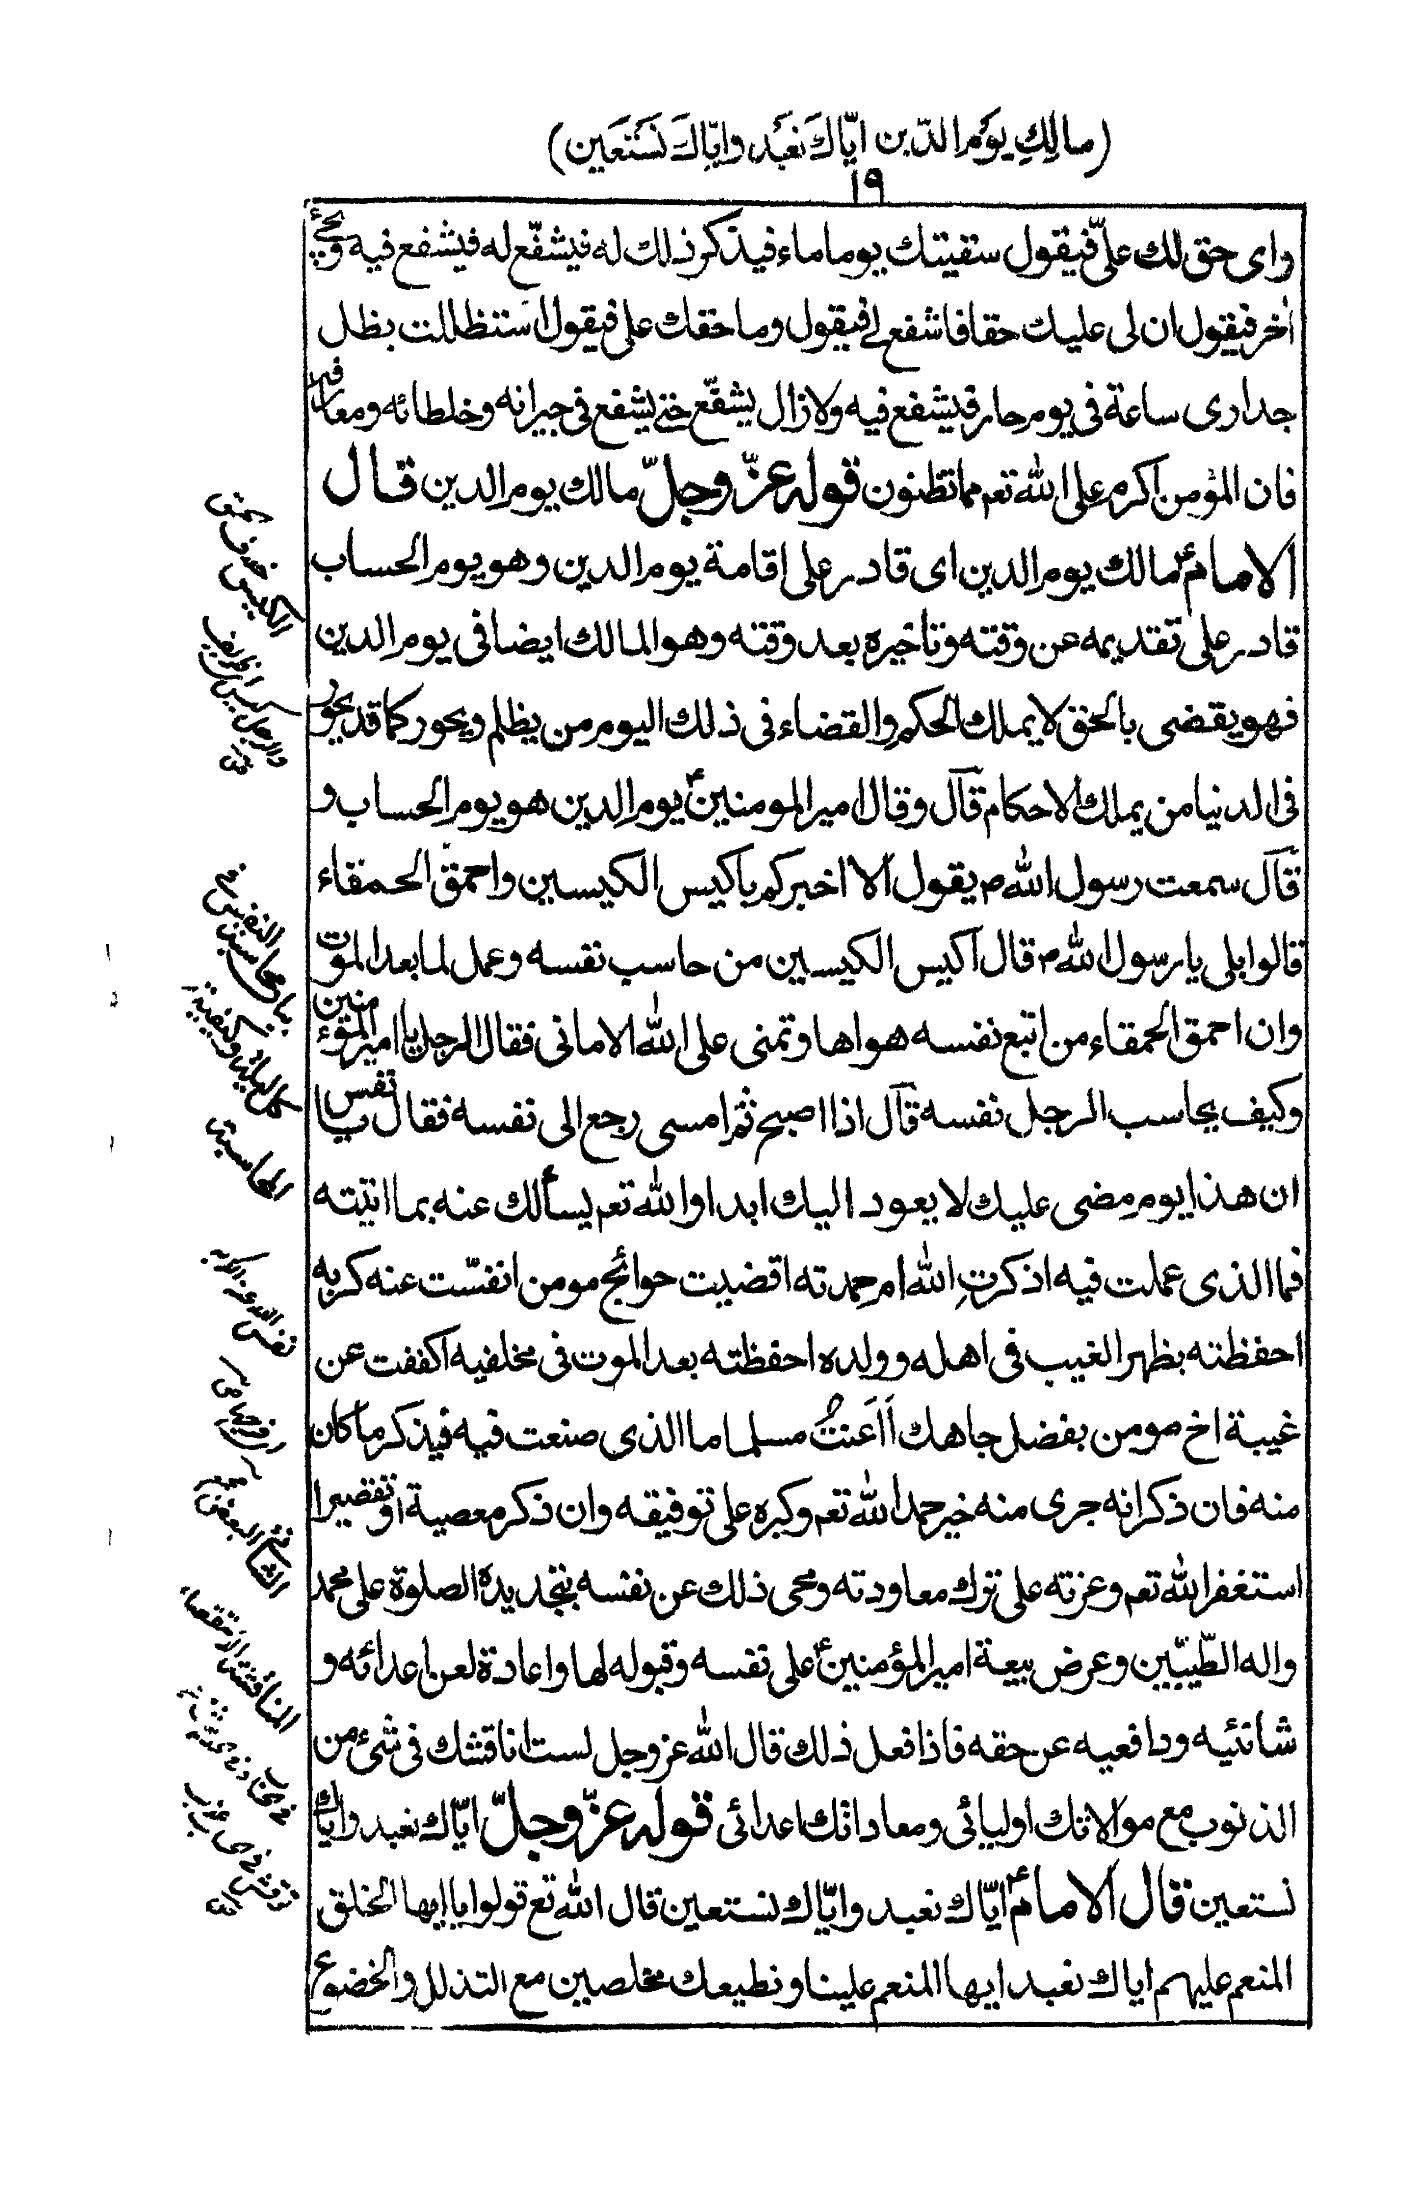 (مالِكِ يَوْمِ الدّين ايّاكَ نَعْبُد وايّاكَ نَسْتَعين)
١٩
واى حق لك علىّ فيقول سقيتك يوما ماء فيذكر ذلك له فيشفّع له فيشفع فيه ويجئ
اخر فيقول ان لى عليك حقا فاشفع لى فيقول وما حقك على فيقول استظللت بظل
جدارى ساعة فى يوم حار فيشفع فيه ولا زال يشفّع حتى يشفع فى جيرانه وخلطائه ومعارفه
فان المؤمن اكرم على الله تعم مما تظنون قوله عزّ وجلّ مالك يوم الدين قال
الامام ع مالك يوم الدين اى قادر على اقامة يوم الدين وهو يوم الحساب
قادر على تقديمه عن وقته وتاخيره بعد وقته وهو المالك ايضا فى يوم الدين
فهو يقضى بالحق لا يملك الحكم والقضاء فى ذلك اليوم من يظلم ويجور كما قد يجور
فى الدنيا من يملك الاحكام قال وقال امير المومنين ع يوم الدين هو يوم الحساب و
قال سمعت رسول الله ص يقول الا اخبركم باكيس الكيسين واحمق الحمقاء
قالوا بلى يا رسول الله ص قال اكيس الكيسين من حاسب نفسه وعمل لما بعد الموت
وان احمق الحمقاء من اتبع نفسه هواها وتمنى على الله الامانى فقال الرجل يا امير المؤمنين
وكيف يحاسب الرجل نفسه قال اذا اصبح ثم امسى رجع الى نفسه فقال يا نفس
ان هذا يوم مضى عليك لا يعود اليك ابدا والله تعم يسألك عنه بما افنيته
فما الذى عملت فيه اذكرتِ الله ام حمدته اقضيت حوائج مومن انفسّت عنه كربه
احفظته بظهر الغيب فى اهله وولده احفظته بعد الموت فى مخلفيه اكففت عن
غيبة اخ مومن بفضل جاهك أاَعَنتُ مسلما ما الذى صنعت فيه فيذكر ما كان
منه فان ذكر انه جرى منه خير حمد الله تعم وكبره على توفيقه وان ذكر معصية او تقصيرا
استغفر الله تعم وعزته على ترك معاودته ومحى ذلك عن نفسه بتجديده الصلوة على محمد
واله الطّيبّين وعرض بيعة امير المؤمنين ع على نفسه وقبوله لها واعادة لعن اعدائه و
شانئيه ودافعيه عن حقه فاذا فعل ذلك قال الله عز وجل لست اناقشك فى شئ من
الذنوب مع موالاتك اوليائى ومعاداتك اعدائى قوله عزّ وجلّ ايّاك نعبد واياك
نستعين قال الامام ع ايّاك نعبد وايّاك نستعين قال الله تع قولوا يا ايها الخلق
المنعم عليهم اياك نعبد ايها المنعم علينا ونطيعك مخلصين مع التذلل والخضوع
الكيس خلاف الحمق
والرجل كيس
بيان محاسبة النفس فى
كل ليلة وكيفية
المحاسبة
نفس الله عنه الكربة